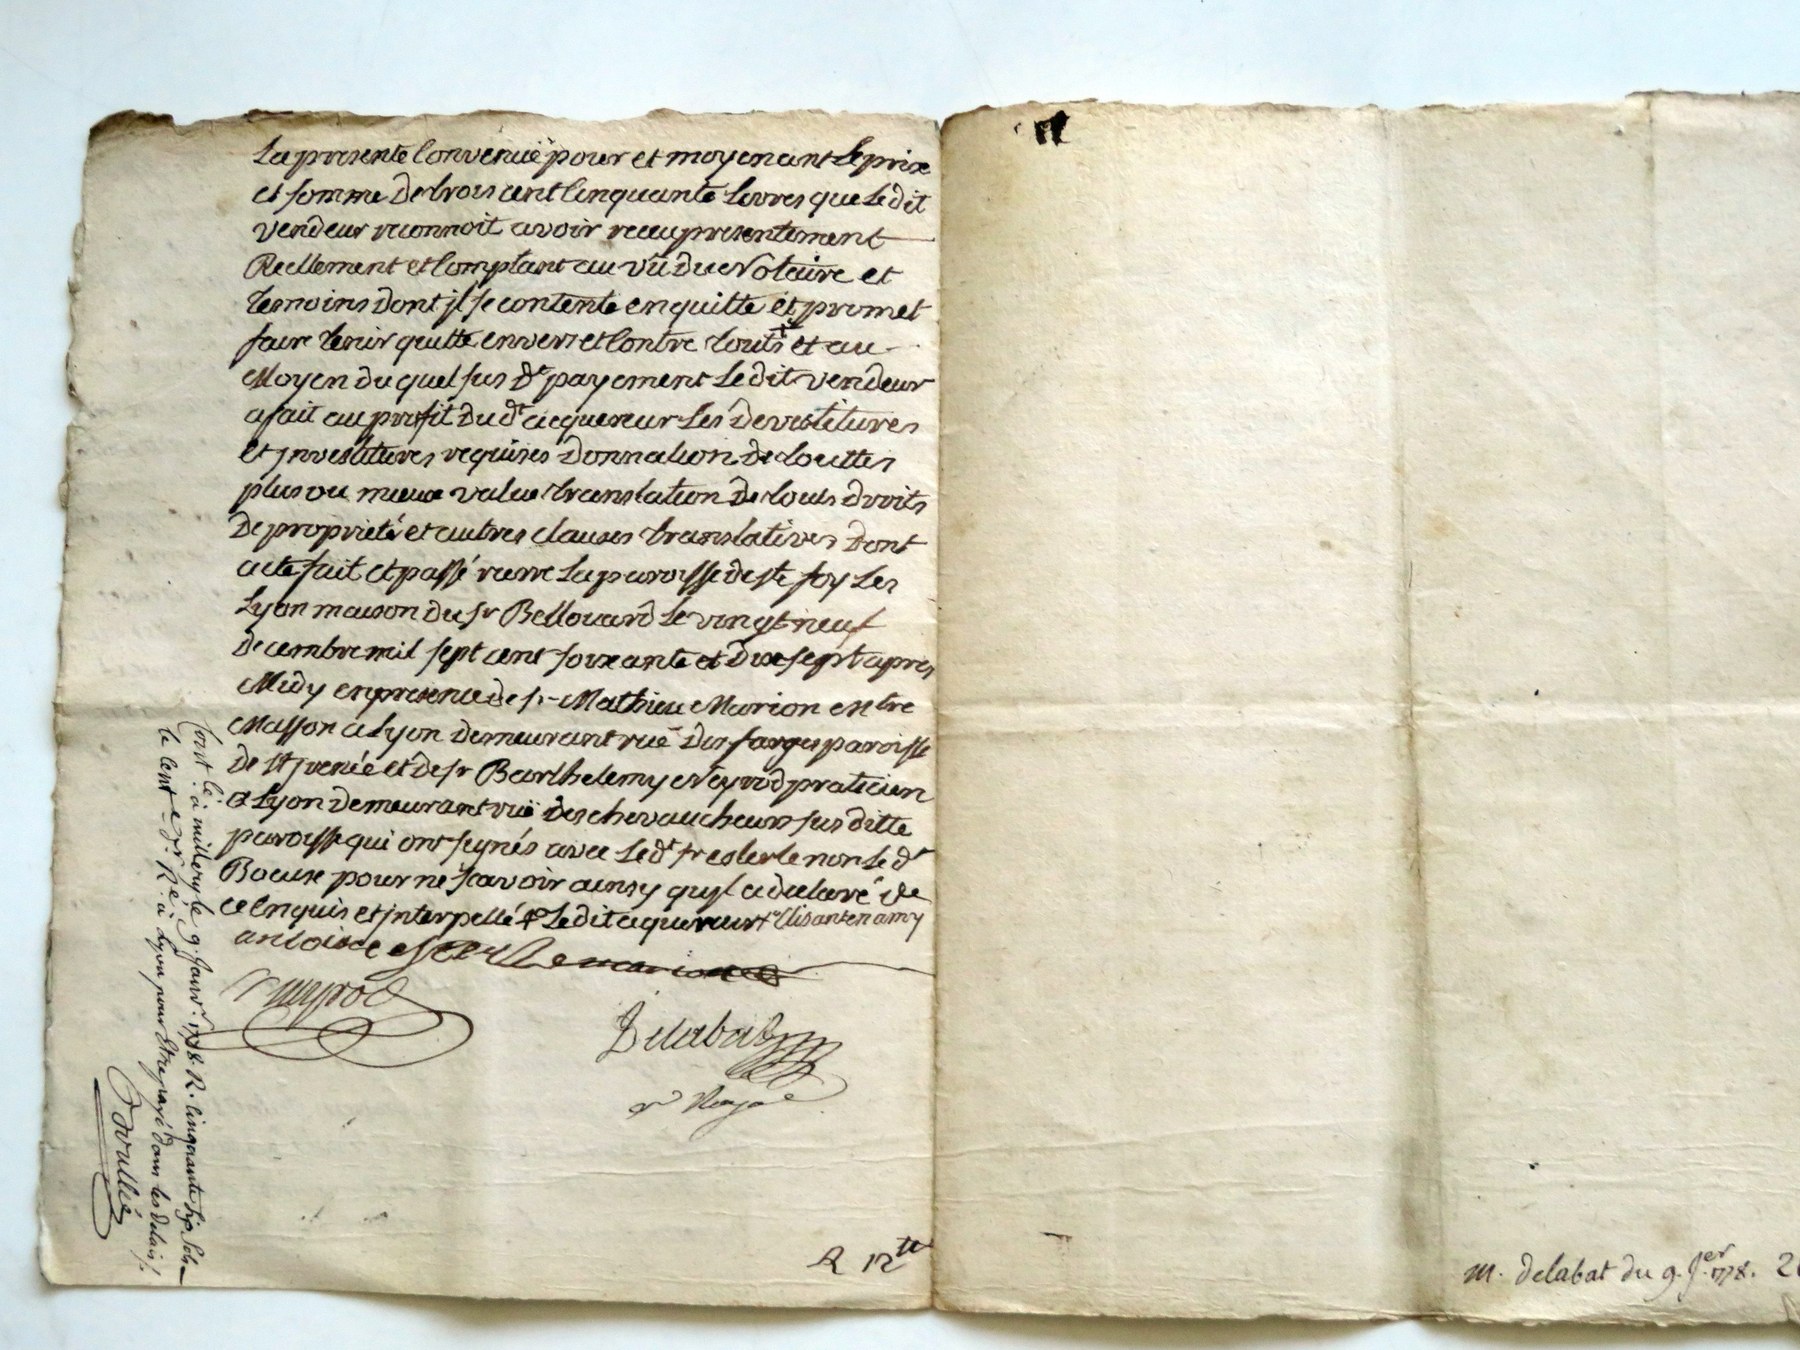 La presente Convenuë pour et moyenant Le prix
et somme De trois cent Cinquante Livres que Le dit
vendeur reconnoit avoir receu presentement
Reellement et Comptant au vû Du Notaire et
temoins Dont jl se contente en quitte et promet
faire tenir quitte envers et Contre touts et au
Moyen du quel sus Dt payement Le dit vendeur
a fait au profit Du dt acquereur Les Devestitures
et jnvestitures requises Donnation De touttes
plus ou mieux value translation De touts droits
De proprieté et autres clauses translatives Dont
acte fait et passé La paroisse de Ste foy Les
Lyon maison du Sr Bellouard Le vingt neuf
Decembre mil sept cent soixante et Dix sept apres
Midy en presence De Sr Mathieu Marion
Masson a Lyon Demeurant ruë Des farges paroisse
de St jrenée et de Sr Barthelemy Neyrod praticien
a Lyon Demeurant ruë Des chevaucheurs sus ditte
paroisse qui ont signés avec Le dt Sr esterle non Le dt
Bocuse pour ne sçavoir ainsy qu'jl a declaré de
ce Enquis et jnterpellé Le dit aquereur
antoine esterle marion
Neyrod
Delabat
R 12 tt
Cont. le. à millery le 9. Janvr. 1778. R. Cinquante six sols
le Cent e. dr. Ré. à Lyon pour Etre payé dans les delais.
m. delabat du 9. Jer 1778.